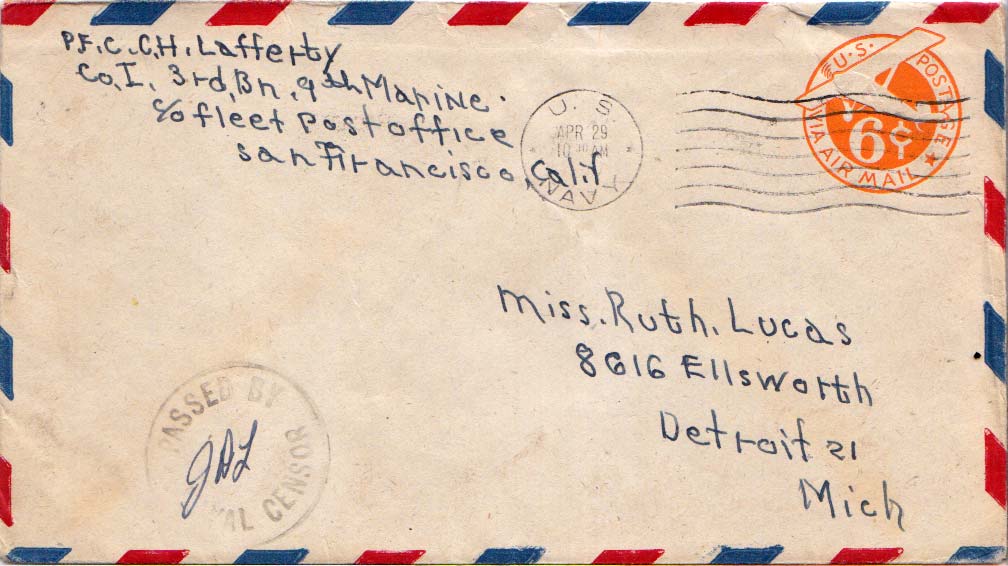 P.F.C. C.H. Lafferty
Co, I. 3rd, Bn. 9th Marine.
c/o fleet Post office
san Francisco, Calif
U. S.
APR 29
10 AM
NAVY
U.S. POSTAGE
6¢
VIA AIR MAIL
Miss. Ruth. Lucas
8616 Ellsworth
Detroit 21
Mich
PASSED BY
CENSOR